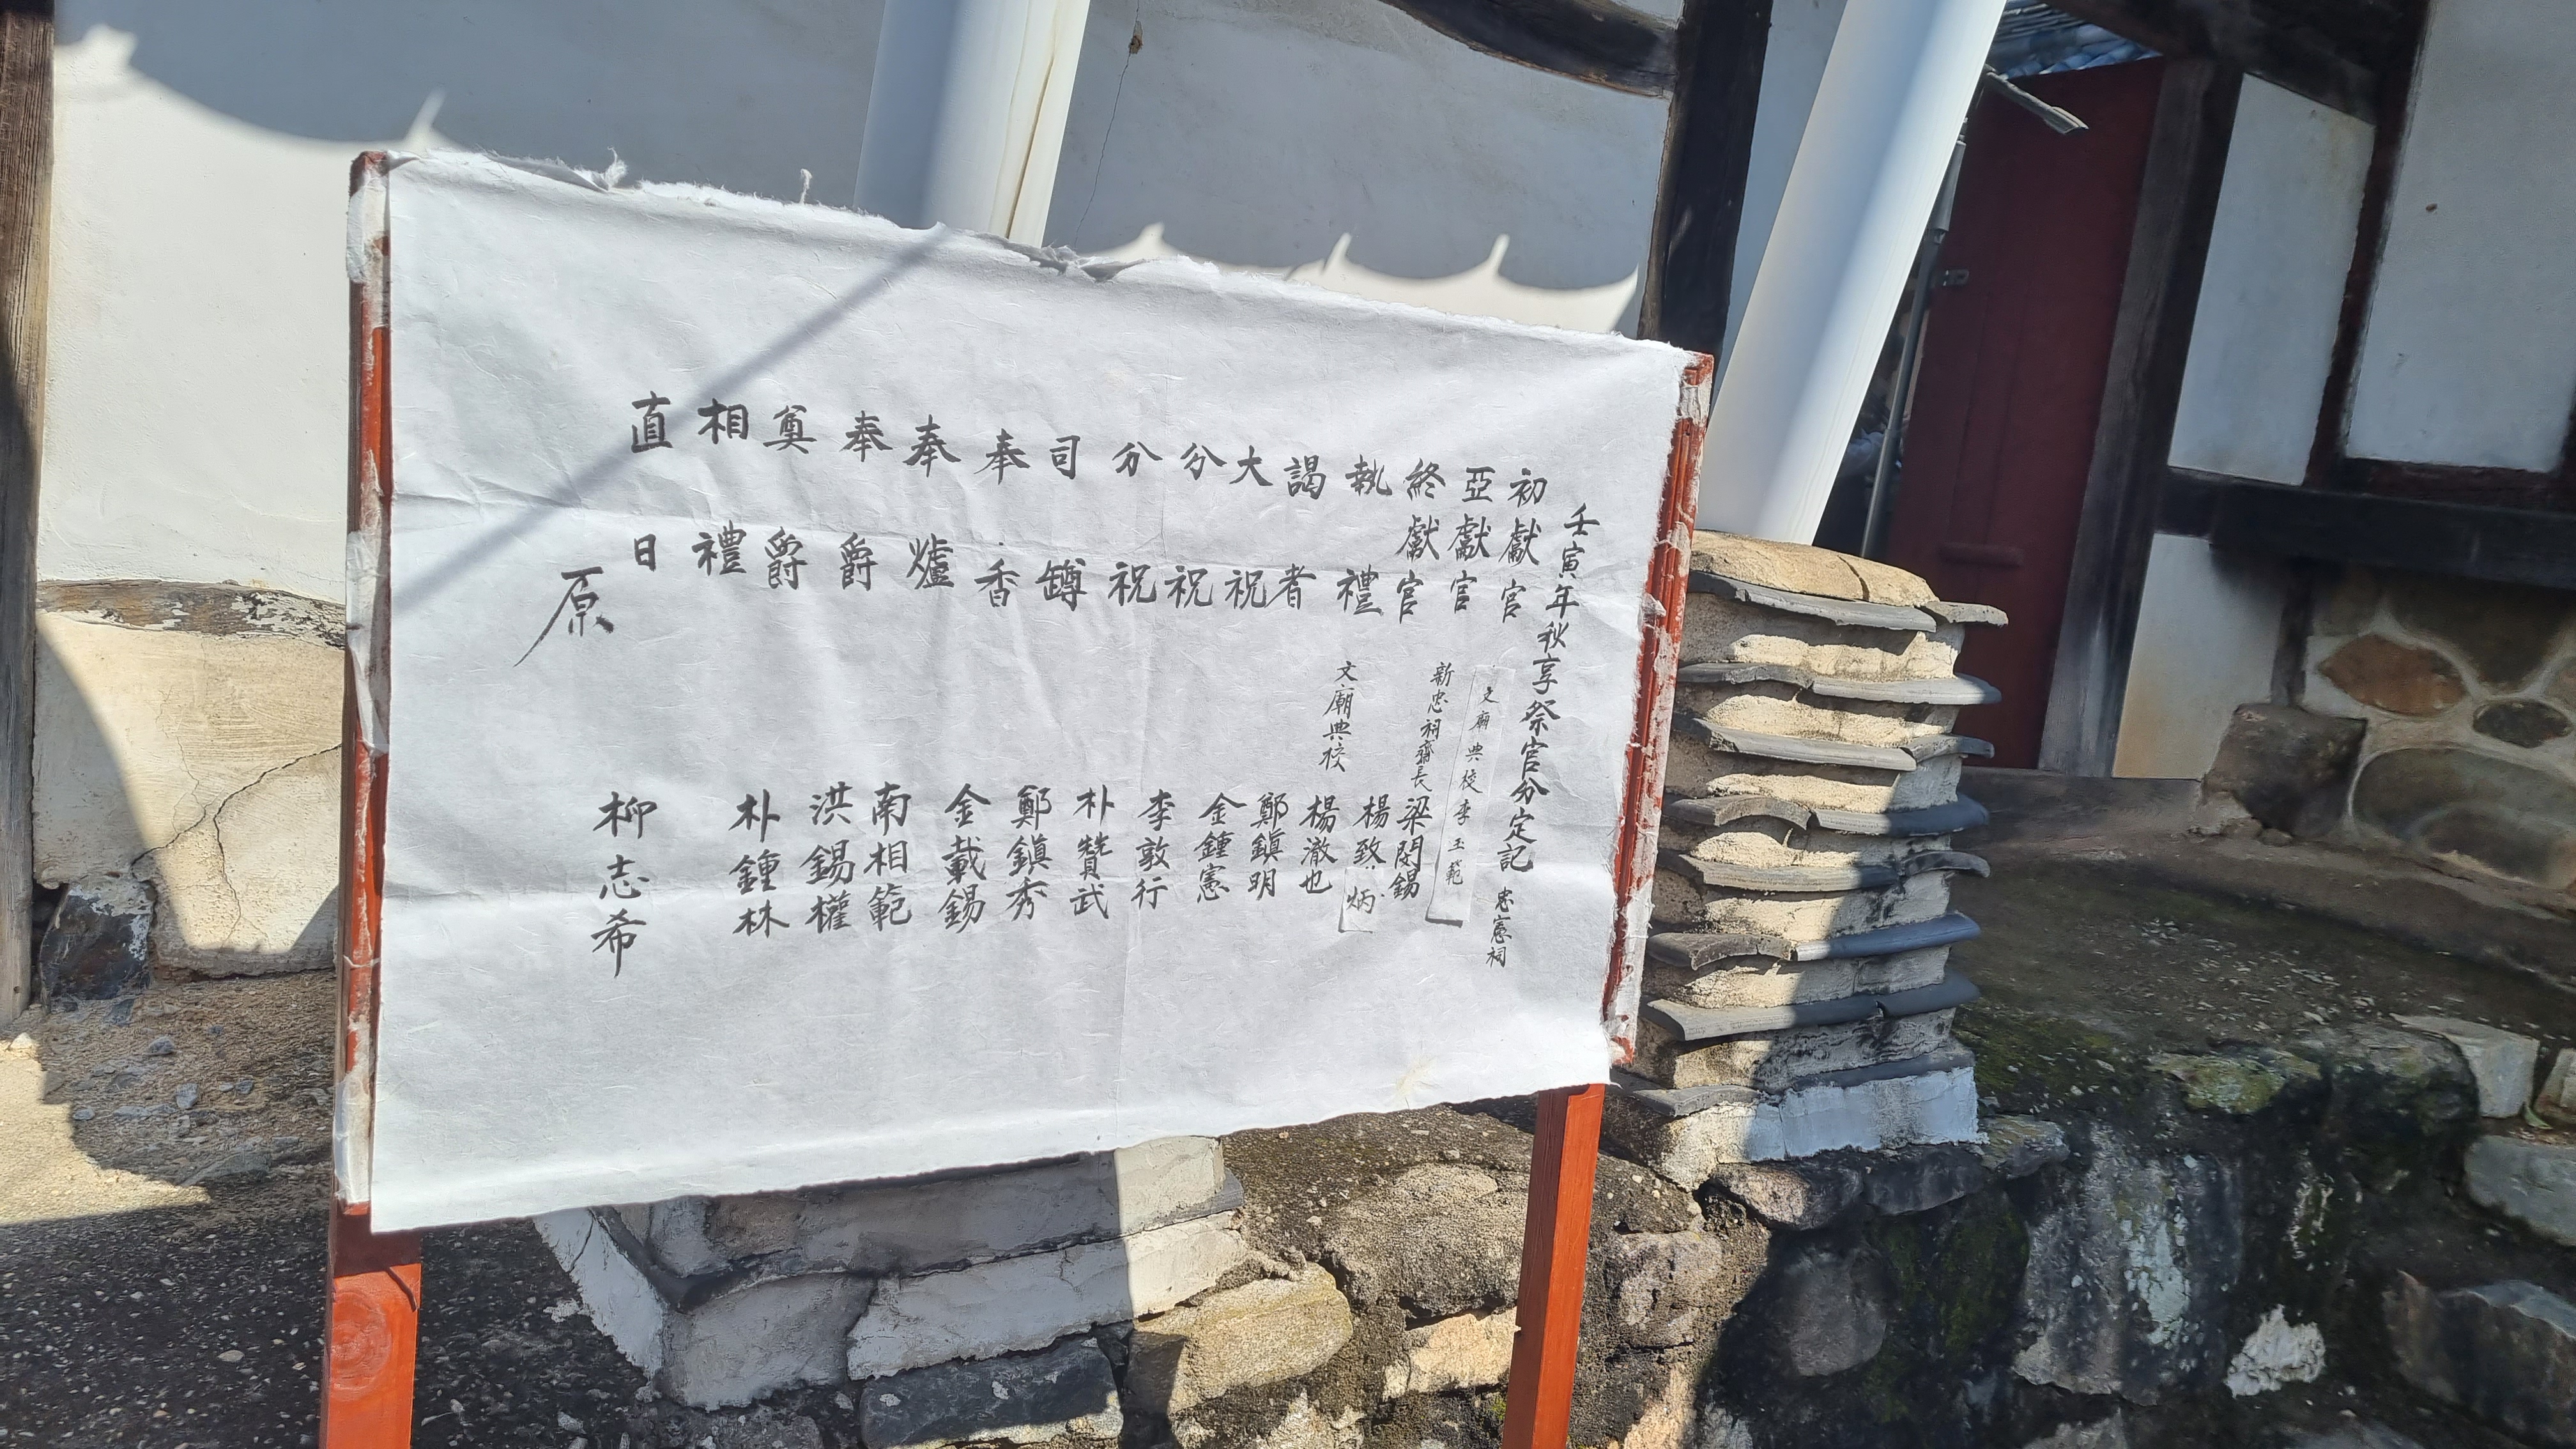 壬寅年秋享祭官分定記 忠憲祠
初獻官 文廟典校 李玉範
亞獻官 新忠祠齋長 梁閔錫
終獻官 楊致炳
執禮 文廟典校 楊澈也
謁者 鄭鎭明
大祝 金鍾憲
分祝 李敦行
分祝 朴贊武
司罇 鄭鎭秀
奉香 金載錫
奉爐 南相範
奉爵 洪錫權
奠爵 朴鍾林
相禮
直日 柳志希
原